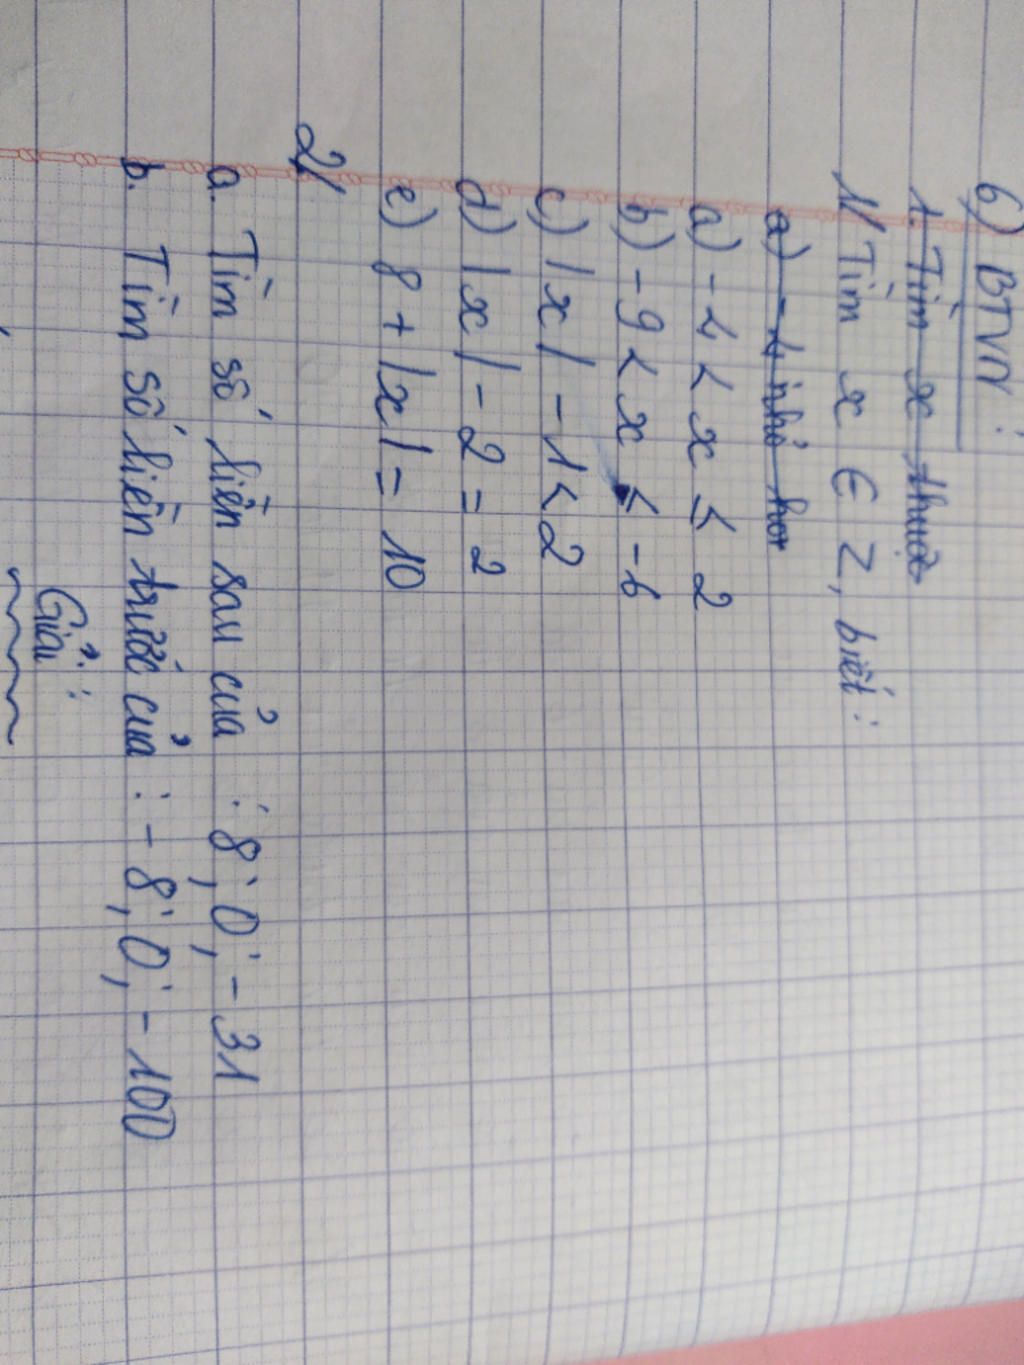 6) BTVN:
1. Tìm x thuộc
1/ Tìm x ∈ Z, biết:
a) -4 nhỏ hơn
a) -4 < x ≤ 2
b) -9 < x ≤ -6
c) |x| - 1 < 2
d) |x| - 2 = 2
e) 8 + |x| = 10
2/
a. Tìm số liền sau của : 8; 0; -31
b. Tìm số liền trước của : -8; 0; -100
Giải: